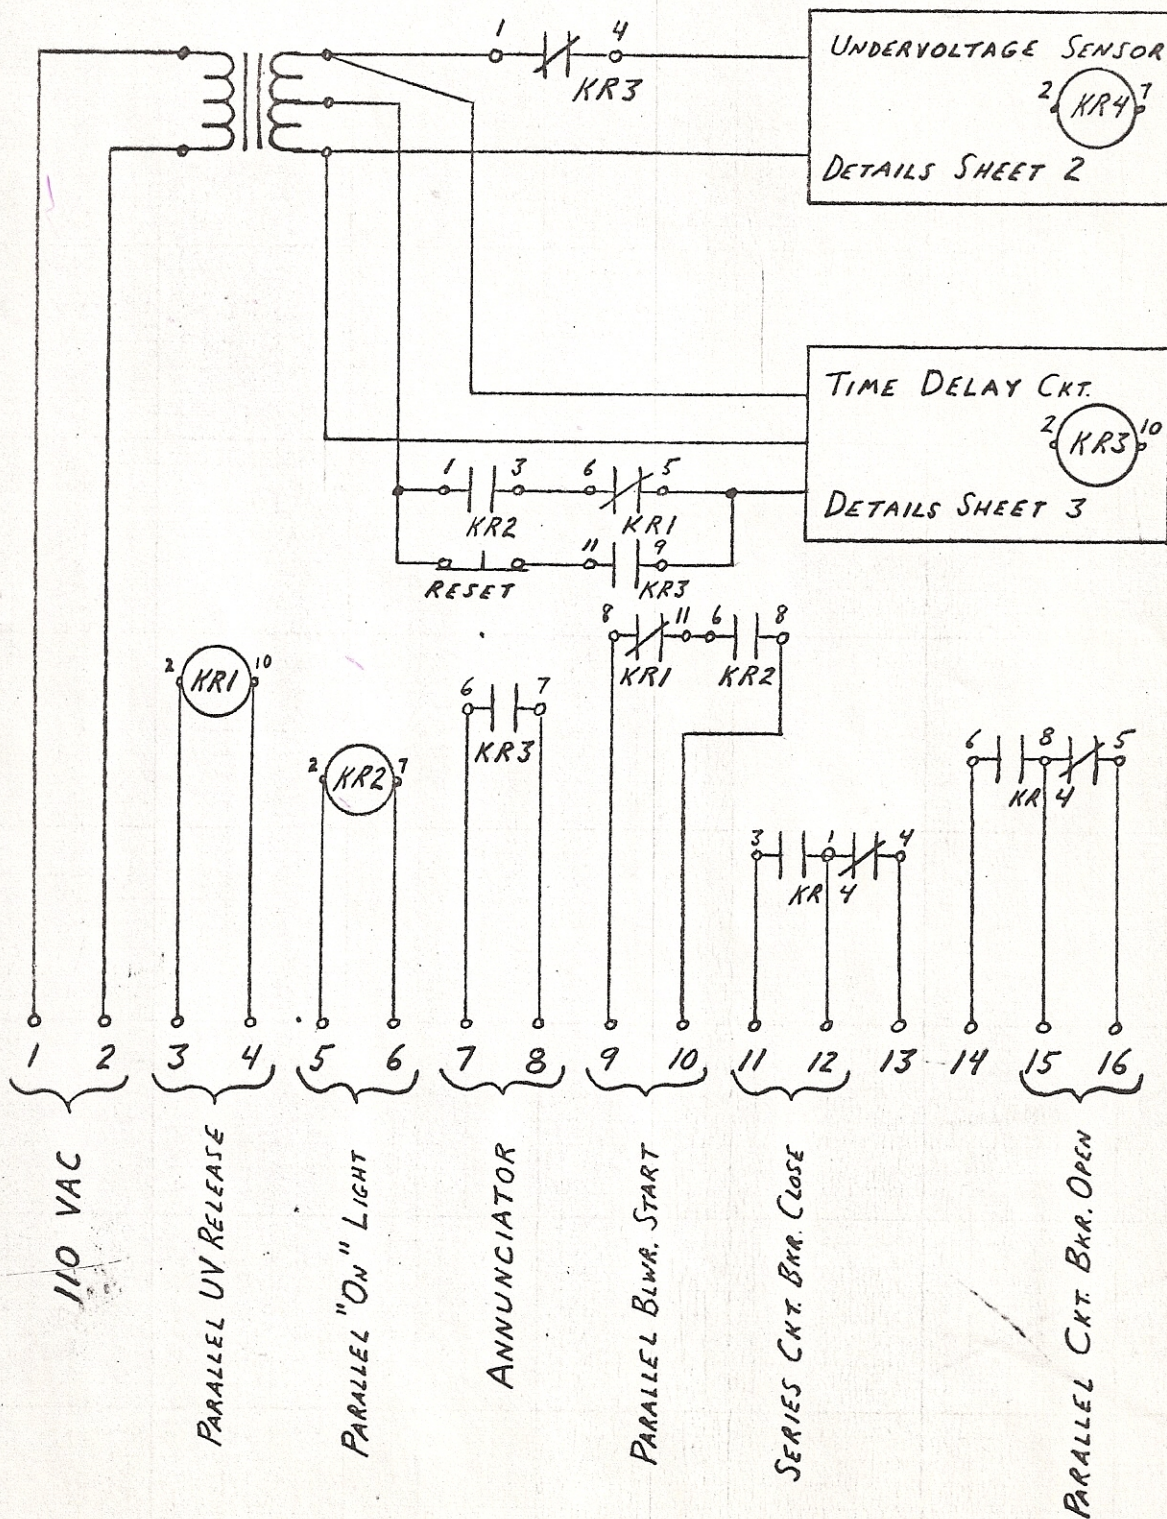 1 4
KR3
UNDERVOLTAGE SENSOR
2 KR4 7
DETAILS SHEET 2
TIME DELAY CKT.
2 KR3 10
DETAILS SHEET 3
1 3 6 5
KR2 KR1
11 9
RESET KR3
8 11 6 8
KR1 KR2
2 KR1 10
6 7
KR3
2 KR2 7
6 8 5
KR 4
3 1 4
KR 4
1 2 3 4 5 6 7 8 9 10 11 12 13 14 15 16
110 VAC
PARALLEL UV RELEASE
PARALLEL "ON" LIGHT
ANNUNCIATOR
PARALLEL BLWR. START
SERIES CKT. BKR. CLOSE
PARALLEL CKT. BKR. OPEN